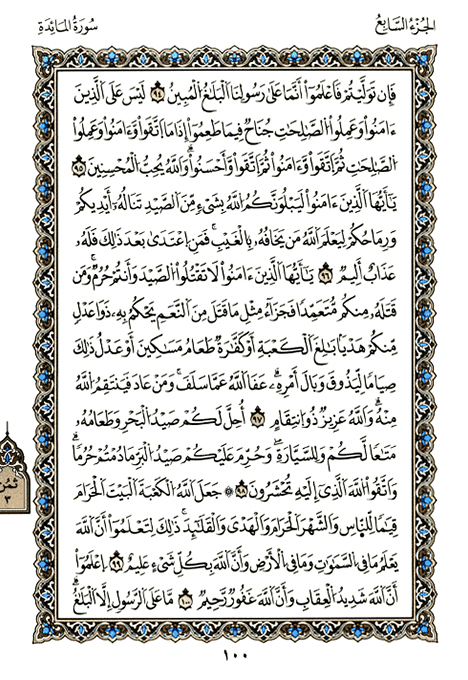 الجُزْءُ السَّابِعُ
سُورَةُ المَائِدَةِ
فَإِن تَوَلَّيْتُمْ فَاعْلَمُوٓا۟ أَنَّمَا عَلَىٰ رَسُولِنَا الْبَلَٰغُ الْمُبِينُ ٩٤ لَيْسَ عَلَى الَّذِينَ
ءَامَنُوا۟ وَعَمِلُوا۟ الصَّٰلِحَٰتِ جُنَاحٌ فِيمَا طَعِمُوٓا۟ إِذَا مَا اتَّقَوا۟ وَّءَامَنُوا۟ وَعَمِلُوا۟
الصَّٰلِحَٰتِ ثُمَّ اتَّقَوا۟ وَّءَامَنُوا۟ ثُمَّ اتَّقَوا۟ وَّأَحْسَنُوا۟ وَاللَّهُ يُحِبُّ الْمُحْسِنِينَ ٩٥
يَٰٓأَيُّهَا الَّذِينَ ءَامَنُوا۟ لَيَبْلُوَنَّكُمُ اللَّهُ بِشَىْءٍ مِّنَ الصَّيْدِ تَنَالُهُۥٓ أَيْدِيكُمْ
وَرِمَاحُكُمْ لِيَعْلَمَ اللَّهُ مَن يَخَافُهُۥ بِالْغَيْبِ فَمَنِ اعْتَدَىٰ بَعْدَ ذَٰلِكَ فَلَهُۥ
عَذَابٌ أَلِيمٌ ٩٦ يَٰٓأَيُّهَا الَّذِينَ ءَامَنُوا۟ لَا تَقْتُلُوا۟ الصَّيْدَ وَأَنتُمْ حُرُمٌ وَمَن
قَتَلَهُۥ مِنكُم مُّتَعَمِّدًا فَجَزَآءُ مِثْلِ مَا قَتَلَ مِنَ النَّعَمِ يَحْكُمُ بِهِۦ ذَوَا عَدْلٍ
مِّنكُمْ هَدْيًا بَٰلِغَ الْكَعْبَةِ أَوْ كَفَّٰرَةُ طَعَامِ مَسَٰكِينَ أَوْ عَدْلُ ذَٰلِكَ
صِيَامًا لِّيَذُوقَ وَبَالَ أَمْرِهِۦ عَفَا اللَّهُ عَمَّا سَلَفَ وَمَنْ عَادَ فَيَنتَقِمُ اللَّهُ
مِنْهُ وَاللَّهُ عَزِيزٌ ذُو انتِقَامٍ ٩٧ أُحِلَّ لَكُمْ صَيْدُ الْبَحْرِ وَطَعَامُهُۥ
مَتَٰعًا لَّكُمْ وَلِلسَّيَّارَةِ وَحُرِّمَ عَلَيْكُمْ صَيْدُ الْبَرِّ مَا دُمْتُمْ حُرُمًا
وَاتَّقُوا۟ اللَّهَ الَّذِىٓ إِلَيْهِ تُحْشَرُونَ ٩٨ ۞ جَعَلَ اللَّهُ الْكَعْبَةَ الْبَيْتَ الْحَرَامَ
قِيَٰمًا لِّلنَّاسِ وَالشَّهْرَ الْحَرَامَ وَالْهَدْىَ وَالْقَلَٰٓئِدَ ذَٰلِكَ لِتَعْلَمُوٓا۟ أَنَّ اللَّهَ
يَعْلَمُ مَا فِى السَّمَٰوَٰتِ وَمَا فِى الْأَرْضِ وَأَنَّ اللَّهَ بِكُلِّ شَىْءٍ عَلِيمٌ ٩٩ اِعْلَمُوٓا۟
أَنَّ اللَّهَ شَدِيدُ الْعِقَابِ وَأَنَّ اللَّهَ غَفُورٌ رَّحِيمٌ ١٠٠ مَّا عَلَى الرَّسُولِ إِلَّا الْبَلَٰغُ
ثُمُن
٣
١٠٠